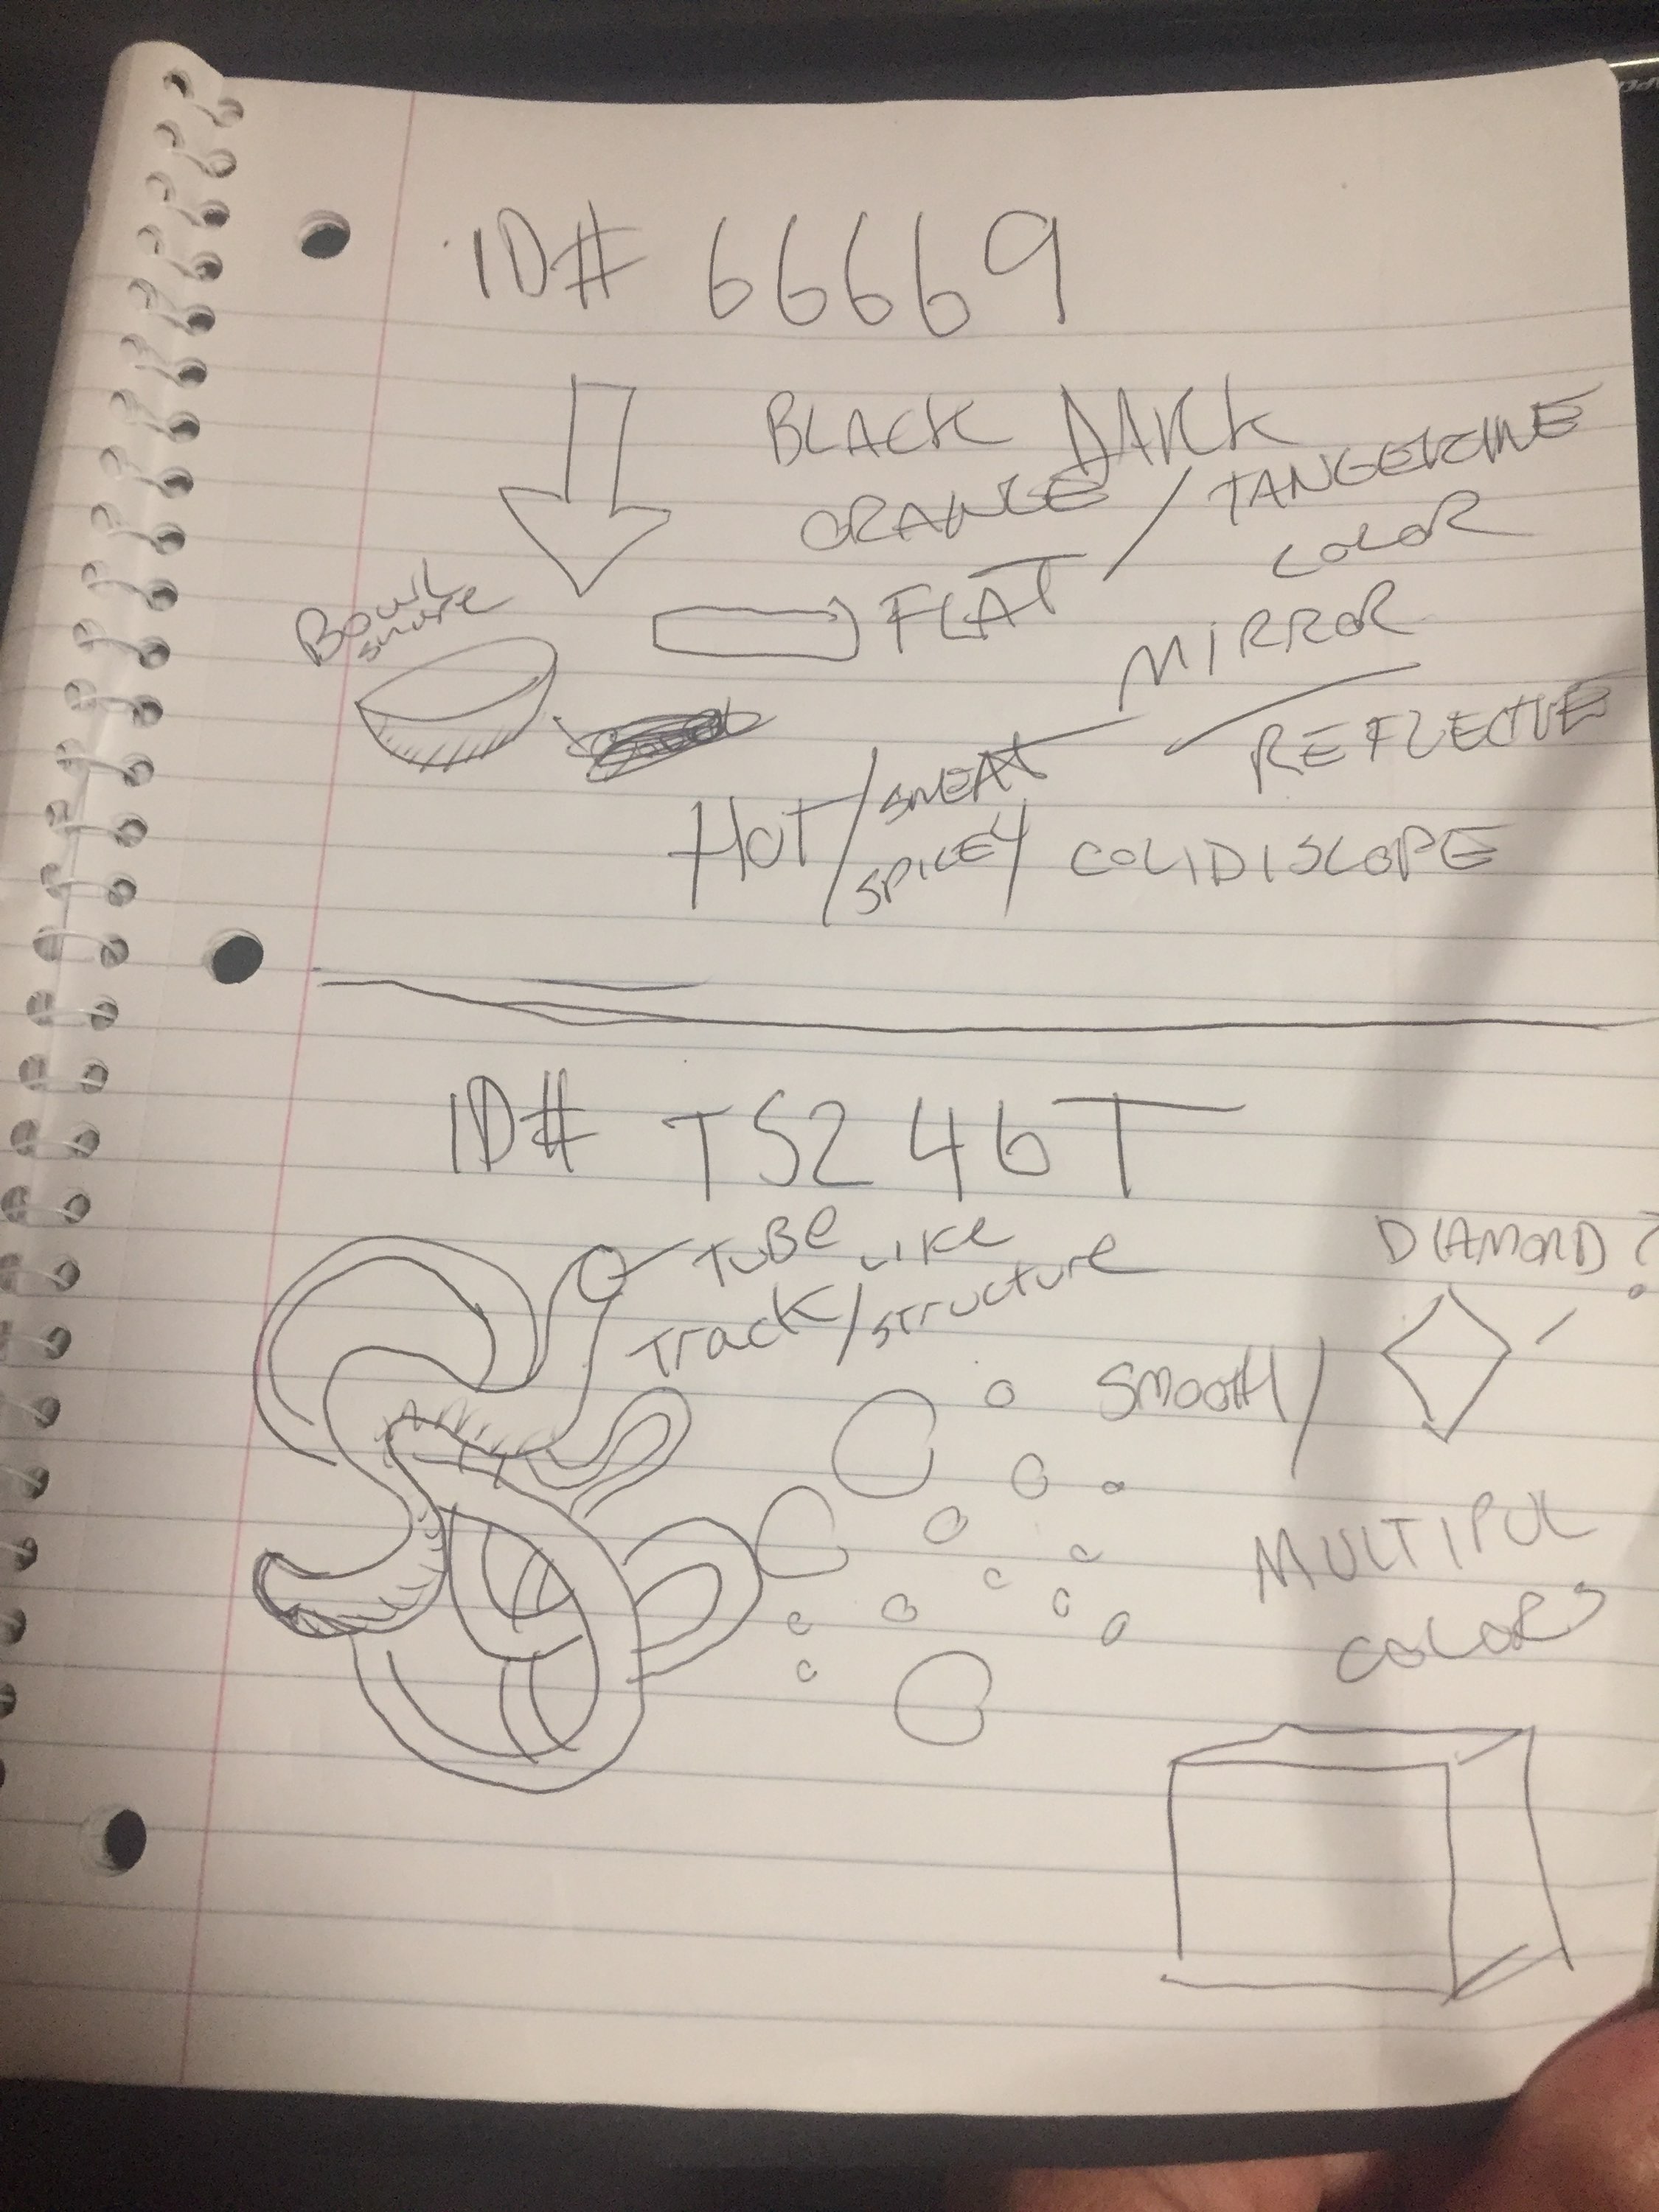 ID# 66669
BLACK DARK
ORANGE / TANGERINE
COLOR
FLAT
Bowl
MIRROR
REFLECTIVE
HOT / SWEAT
SPICEY
COLIDISCOPE
ID# TS246T
TUBE LIKE
Track/structure
DIAMOND?
SMOOTH/
MULTIPUL
COLORS